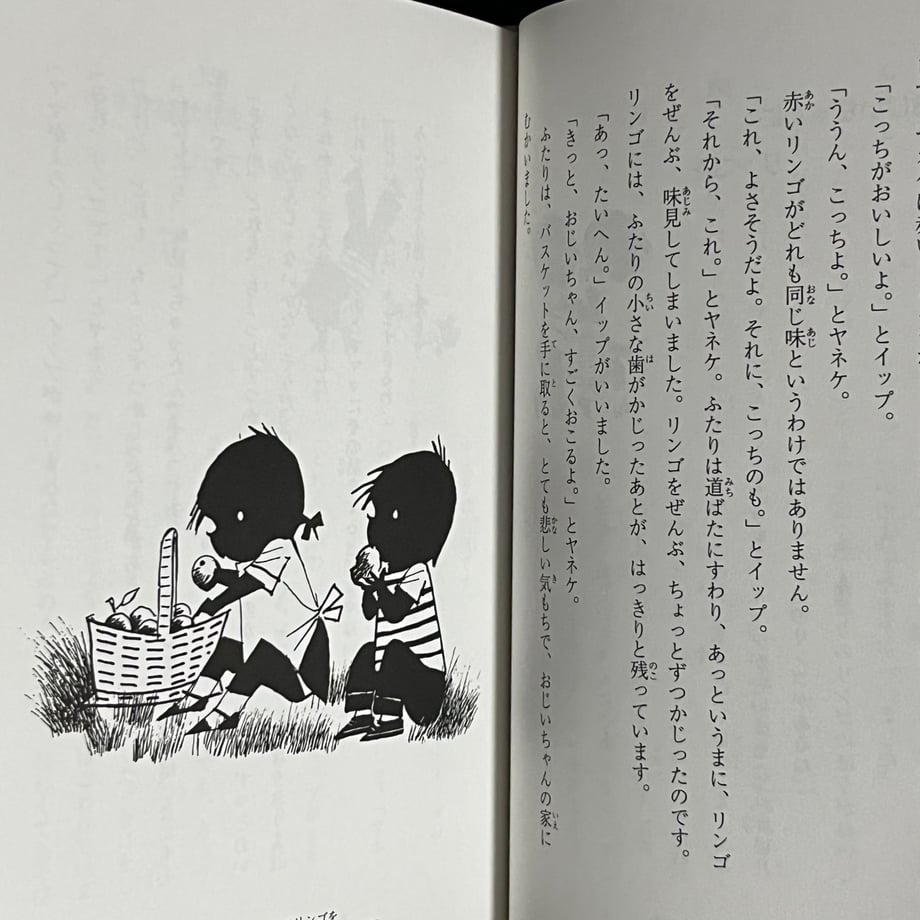 「こっちがおいしいよ。」とイップ。
「ううん、こっちよ。」とヤネケ。
赤いリンゴがどれも同じ味というわけではありません。
「これ、よさそうだよ。それに、こっちのも。」とイップ。
「それから、これ。」とヤネケ。ふたりは道ばたにすわり、あっというまに、リンゴ
をぜんぶ、味見してしまいました。リンゴをぜんぶ、ちょっとずつかじったのです。
リンゴには、ふたりの小さな歯がかじったあとが、はっきりと残っています。
「あっ、たいへん。」イップがいいました。
「きっと、おじいちゃん、すごくおこるよ。」とヤネケ。
ふたりは、バスケットを手に取ると、とても悲しい気もちで、おじいちゃんの家に
むかいました。
リンゴを